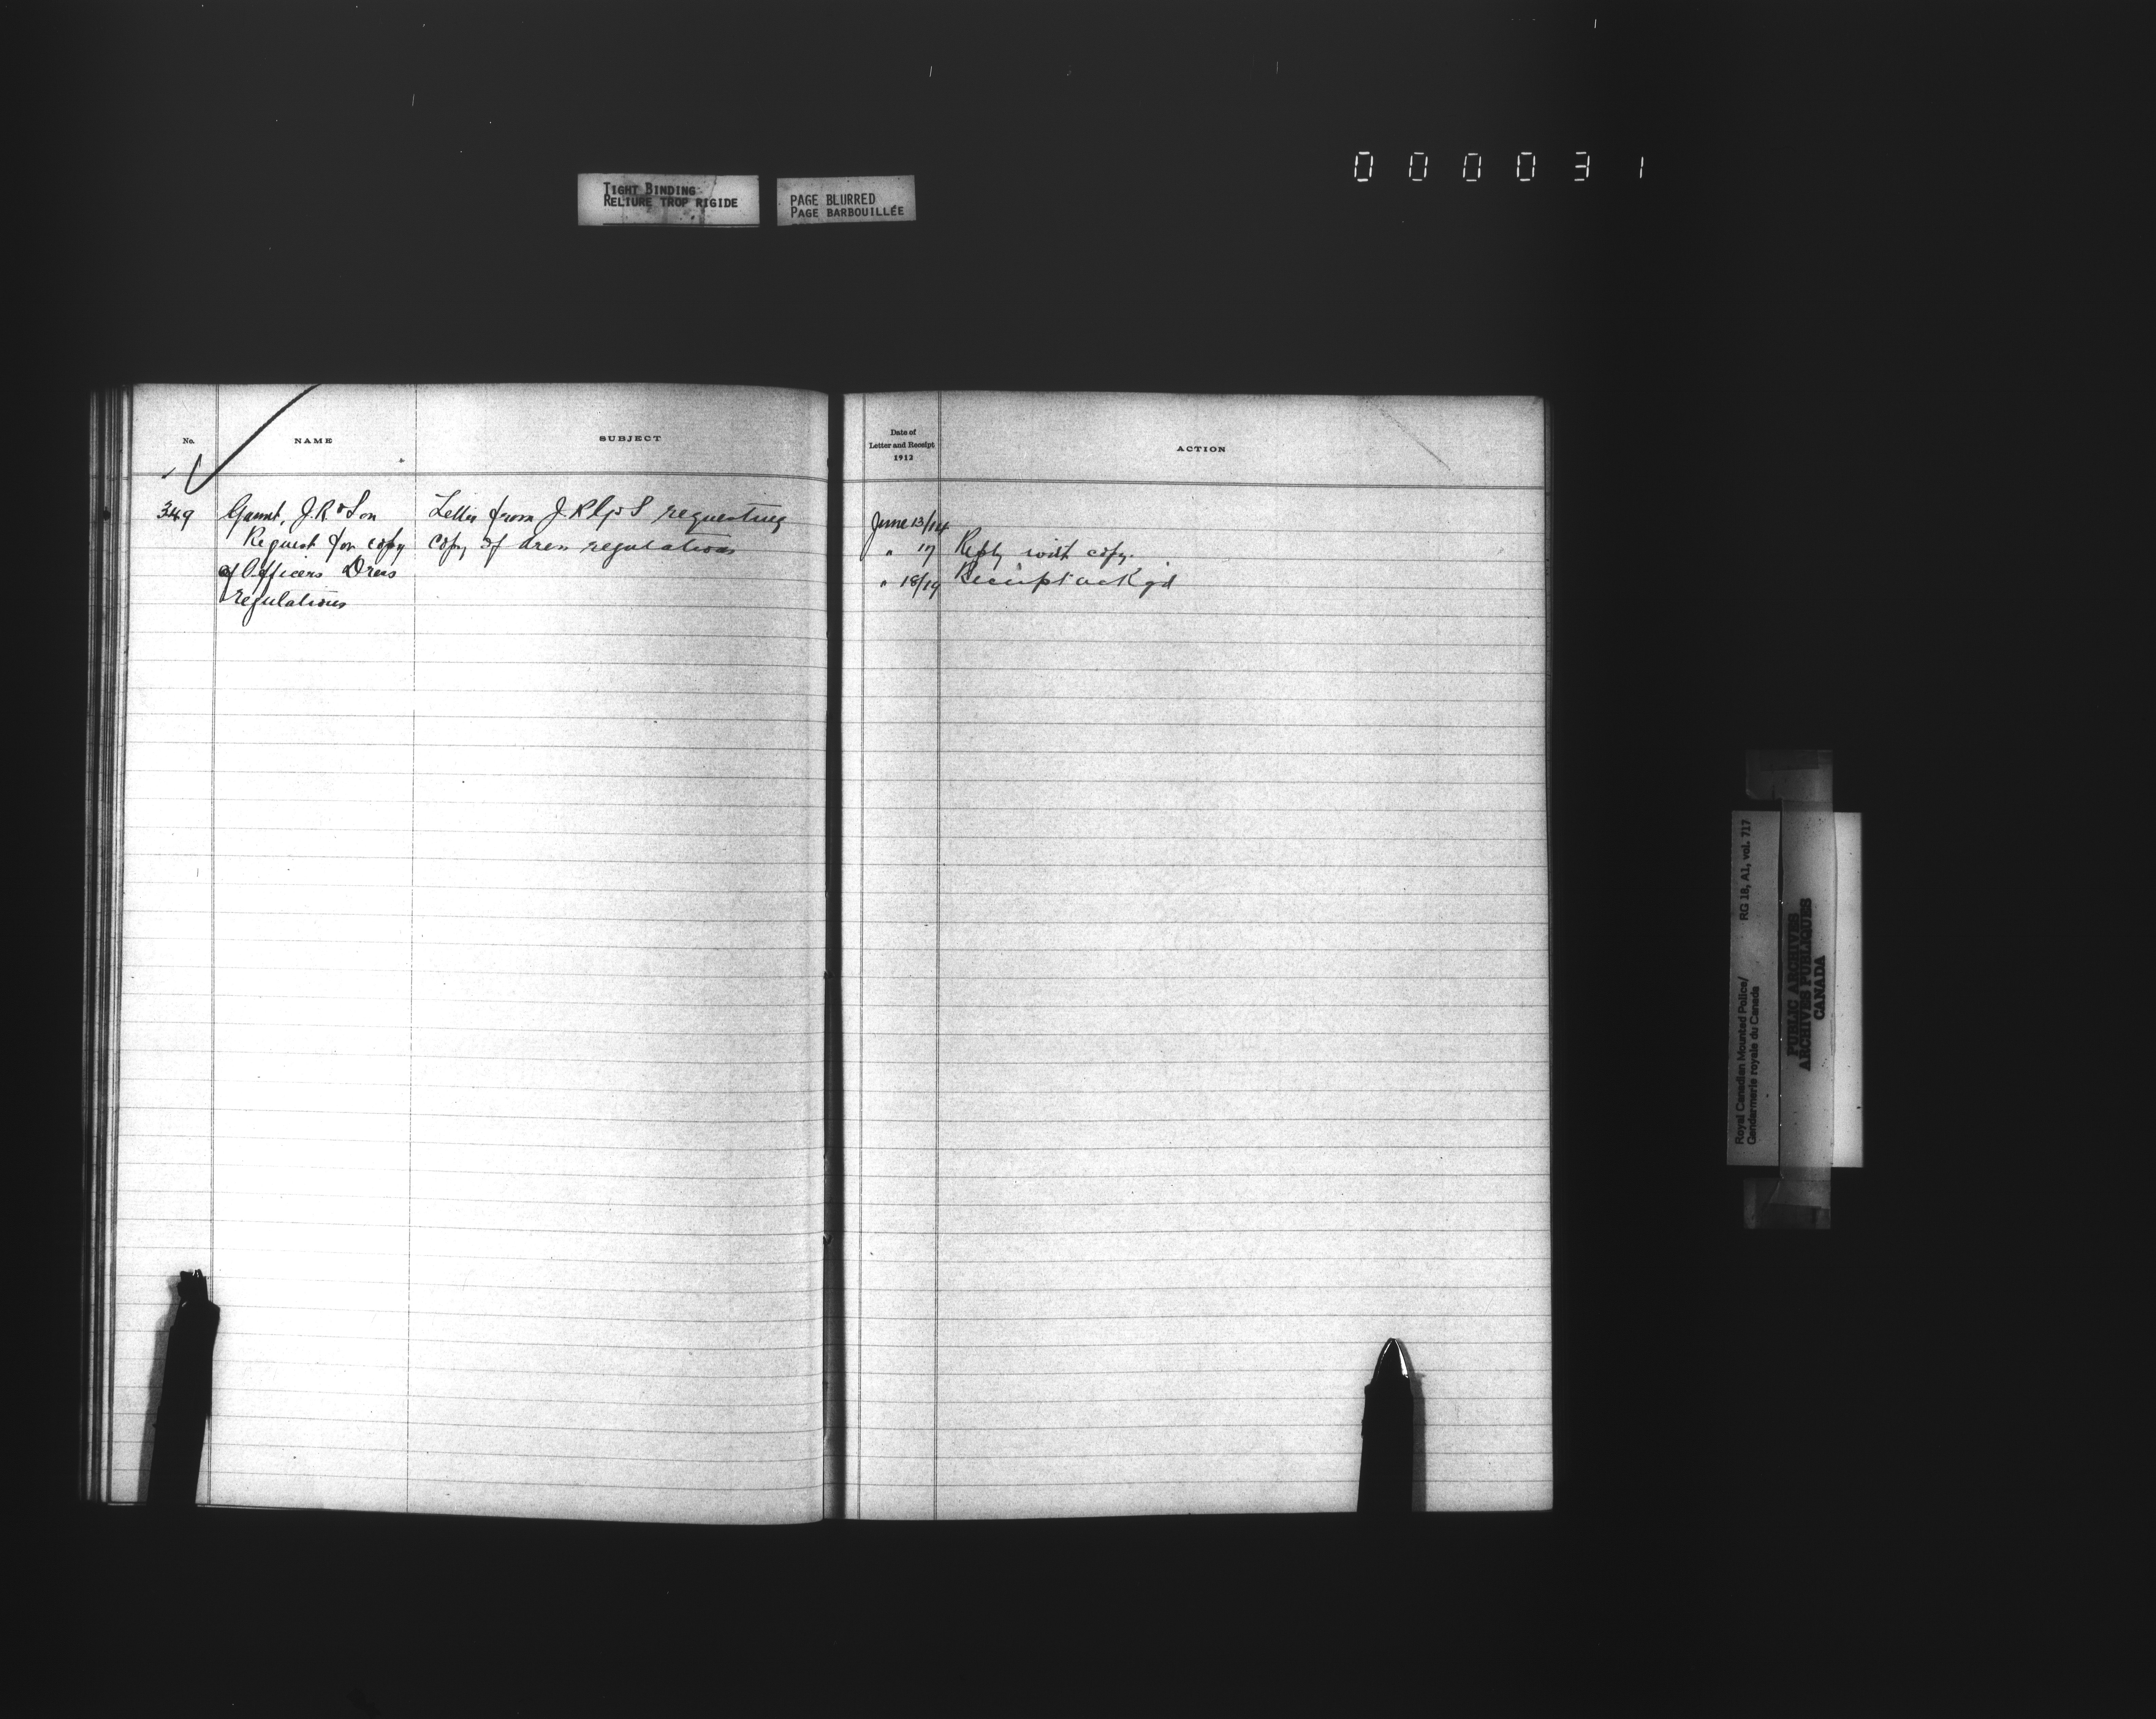 000031
TIGHT BINDING
RELIURE TROP RIGIDE
PAGE BLURRED
PAGE BARBOUILLÉE
No.
NAME
SUBJECT
349
J.R & Son
Request for copy
of Officers Dress
regulations
Letter from J.R. requesting
copy of dress regulations
Date of
Letter and Receipt
1912
ACTION
June 13/14
" 17 Reply with copy.
" 18/19 Receipt ackgd
Royal Canadian Mounted Police/
Gendarmerie royale du Canada
RG 18, A1, vol. 717
PUBLIC ARCHIVES
ARCHIVES PUBLIQUES
CANADA